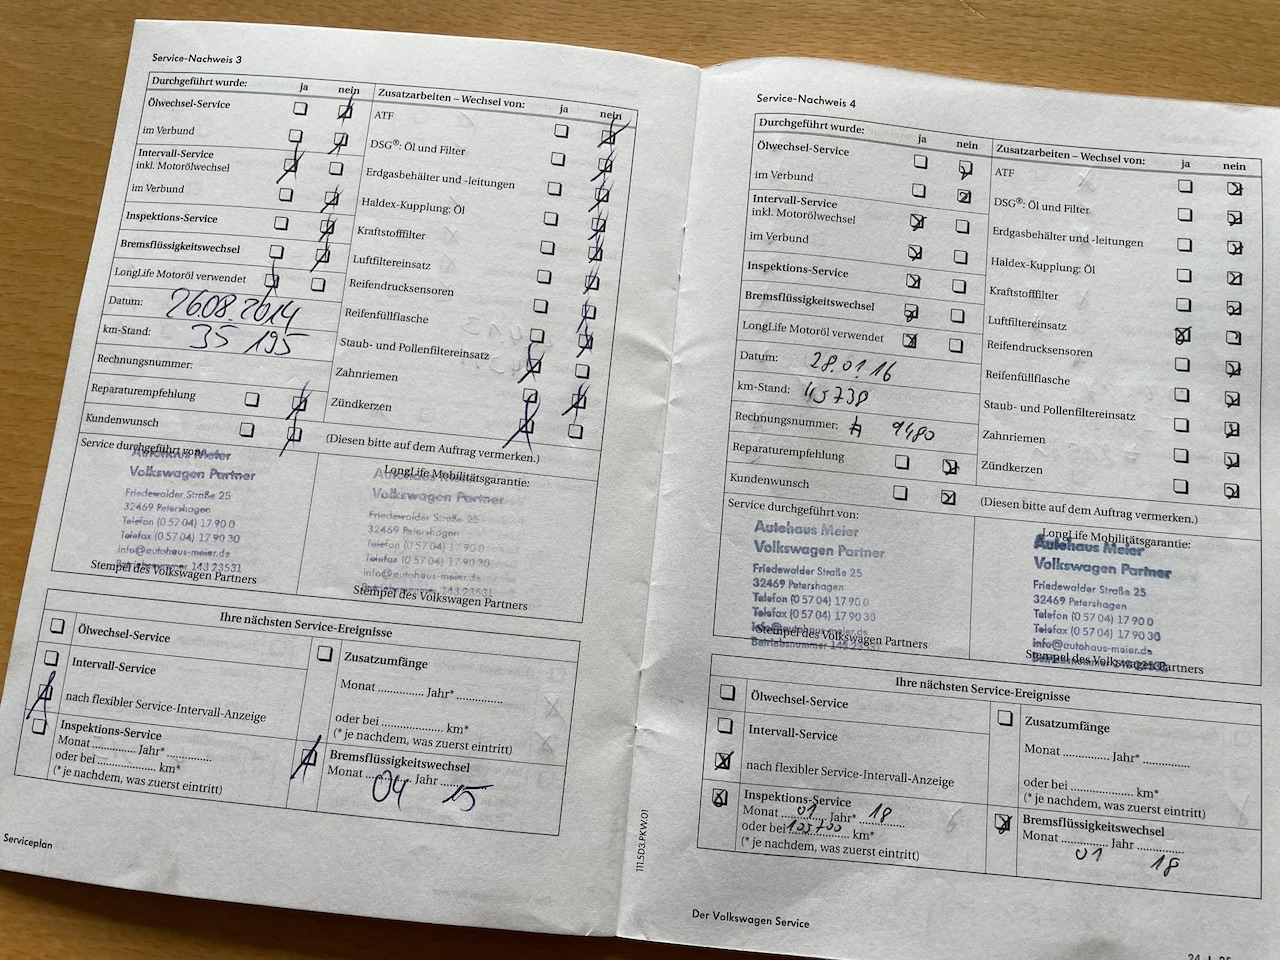 Service-Nachweis 3
Durchgeführt wurde: ja nein
Ölwechsel-Service
im Verbund
Intervall-Service
inkl. Motorölwechsel
im Verbund
Inspektions-Service
Bremsflüssigkeitswechsel
LongLife Motoröl verwendet
Datum: 26.08.2014
km-Stand: 35 195
Rechnungsnummer:
Reparaturempfehlung
Kundenwunsch
Zusatzarbeiten – Wechsel von: ja nein
ATF
DSG®: Öl und Filter
Erdgasbehälter und -leitungen
Haldex-Kupplung: Öl
Kraftstofffilter
Luftfiltereinsatz
Reifendrucksensoren
Reifenfüllflasche
Staub- und Pollenfiltereinsatz
Zahnriemen
Zündkerzen
(Diesen bitte auf dem Auftrag vermerken.)
Service durchgeführt von:
Autohaus Meier
Volkswagen Partner
Friedewalder Straße 25
32469 Petershagen
Telefon (0 57 04) 17 90 0
Telefax (0 57 04) 17 90 30
info@autohaus-meier.de
Betriebsnummer 143 23531
Stempel des Volkswagen Partners
LongLife Mobilitätsgarantie:
Autohaus Meier
Volkswagen Partner
Friedewalder Straße 25
32469 Petershagen
Telefon (0 57 04) 17 90 0
Telefax (0 57 04) 17 90 30
info@autohaus-meier.de
Betriebsnummer 143 23531
Stempel des Volkswagen Partners
Ihre nächsten Service-Ereignisse
Ölwechsel-Service
Intervall-Service
nach flexibler Service-Intervall-Anzeige
Inspektions-Service
Monat ............ Jahr* ............
oder bei .................... km*
(* je nachdem, was zuerst eintritt)
Zusatzumfänge
Monat ............ Jahr* ............
oder bei .................... km*
(* je nachdem, was zuerst eintritt)
Bremsflüssigkeitswechsel
Monat ............ Jahr ............
04 15
Serviceplan
111.5D3.PKW.01
Service-Nachweis 4
Durchgeführt wurde: ja nein
Ölwechsel-Service
im Verbund
Intervall-Service
inkl. Motorölwechsel
im Verbund
Inspektions-Service
Bremsflüssigkeitswechsel
LongLife Motoröl verwendet
Datum: 28.01.16
km-Stand: 45738
Rechnungsnummer: 9480
Reparaturempfehlung
Kundenwunsch
Zusatzarbeiten – Wechsel von: ja nein
ATF
DSG®: Öl und Filter
Erdgasbehälter und -leitungen
Haldex-Kupplung: Öl
Kraftstofffilter
Luftfiltereinsatz
Reifendrucksensoren
Reifenfüllflasche
Staub- und Pollenfiltereinsatz
Zahnriemen
Zündkerzen
(Diesen bitte auf dem Auftrag vermerken.)
Service durchgeführt von:
Autohaus Meier
Volkswagen Partner
Friedewalder Straße 25
32469 Petershagen
Telefon (0 57 04) 17 90 0
Telefax (0 57 04) 17 90 30
info@autohaus-meier.de
Betriebsnummer 143 23531
Stempel des Volkswagen Partners
LongLife Mobilitätsgarantie:
Autohaus Meier
Volkswagen Partner
Friedewalder Straße 25
32469 Petershagen
Telefon (0 57 04) 17 90 0
Telefax (0 57 04) 17 90 30
info@autohaus-meier.de
Stempel des Volkswagen Partners
Ihre nächsten Service-Ereignisse
Ölwechsel-Service
Intervall-Service
nach flexibler Service-Intervall-Anzeige
Inspektions-Service
Monat 01 Jahr* 18
oder bei 105700 km*
(* je nachdem, was zuerst eintritt)
Zusatzumfänge
Monat ............ Jahr* ............
oder bei .................... km*
(* je nachdem, was zuerst eintritt)
Bremsflüssigkeitswechsel
Monat ............ Jahr ............
01 18
Der Volkswagen Service